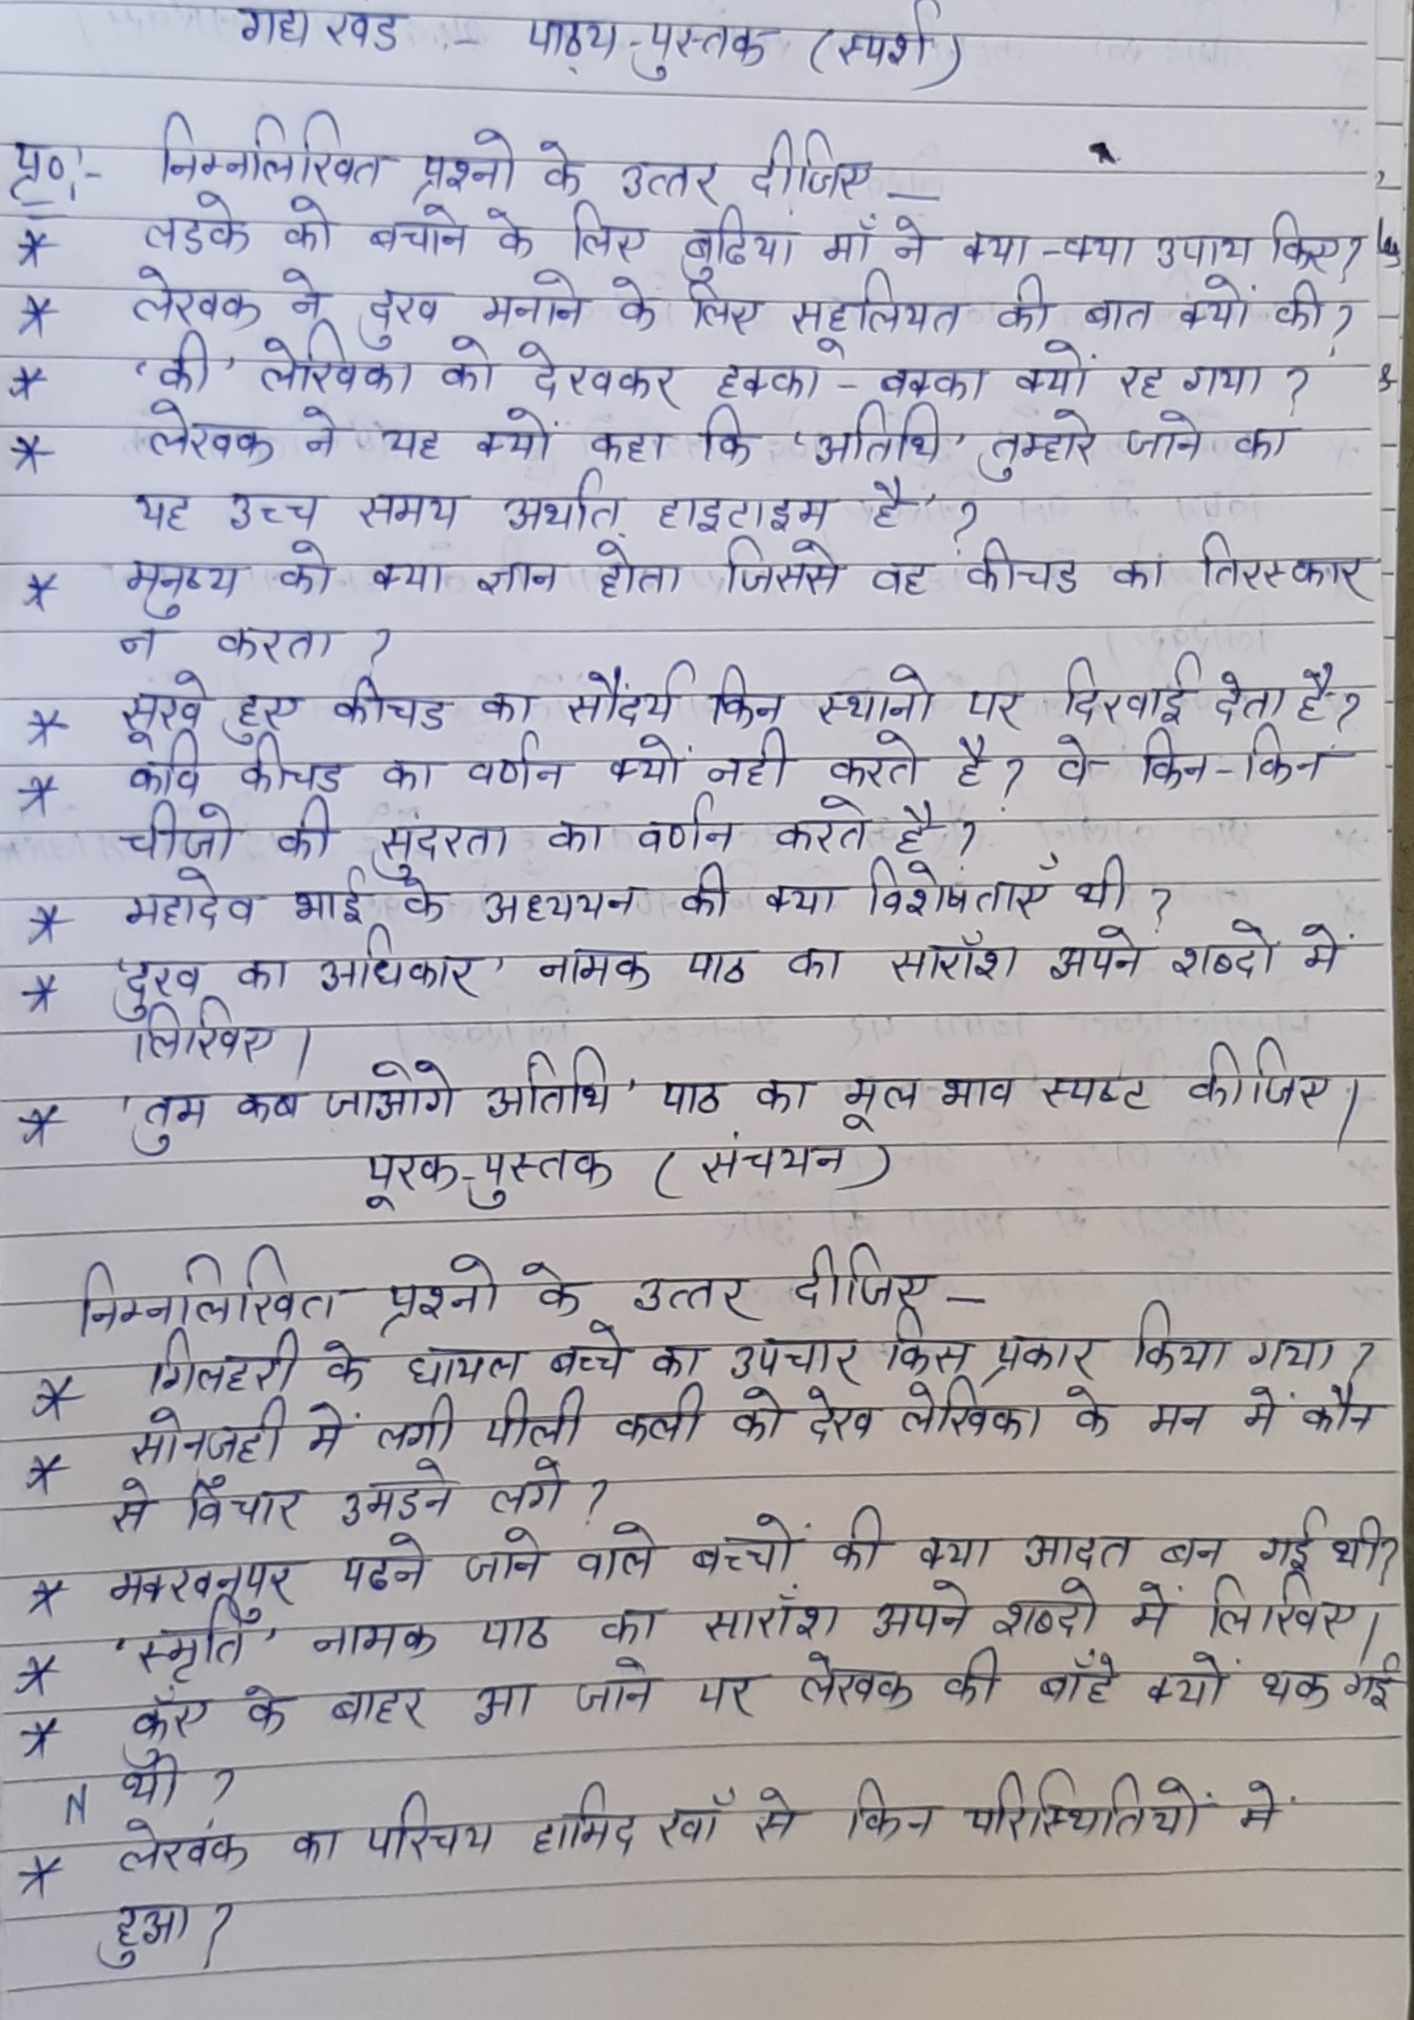 गद्य खंड - पाठ्य-पुस्तक (स्पर्श)
प्र०:- निम्नलिखित प्रश्नो के उत्तर दीजिए —
* लडके को बचाने के लिए बुढिया माँ ने क्या-क्या उपाय किए?
* लेखक ने दुख मनाने के लिए सहूलियत की बात क्यों की?
* 'की' लेखिका को देखकर हक्का-बक्का क्यों रह गया?
* लेखक ने यह क्यों कहा कि 'अतिथि' तुम्हारे जाने का
यह उच्च समय अर्थात् हाइटाइम है'?
* मनुष्य को क्या ज्ञान होता जिससे वह कीचड का तिरस्कार
न करता?
* सूखे हुए कीचड का सौंदर्य किन स्थानो पर दिखाई देता है?
* कवि कीचड का वर्णन क्यों नही करते है? वे किन-किन
चीजो की सुंदरता का वर्णन करते है?
* महादेव भाई के अध्ययन की क्या विशेषताएँ थी?
* 'दुख का अधिकार' नामक पाठ का साराँश अपने शब्दो में
लिखिए।
* 'तुम कब जाओगे अतिथि' पाठ का मूल-भाव स्पष्ट कीजिए।
पूरक-पुस्तक (संचयन)
निम्नलिखित प्रश्नो के उत्तर दीजिए —
* गिलहरी के घायल बच्चे का उपचार किस प्रकार किया गया?
* सोनजही में लगी पीली कली को देख लेखिका के मन में कौन
से विचार उमडने लगे?
* मक्खनपुर पढने जाने वाले बच्चों की क्या आदत बन गई थी?
* 'स्मृति' नामक पाठ का साराँश अपने शब्दो में लिखिए।
* कुँए के बाहर आ जाने पर लेखक की बाँहे क्यों थक गई
थी?
* लेखक का परिचय हामिद खाँ से किन परिस्थितियों में
हुआ?